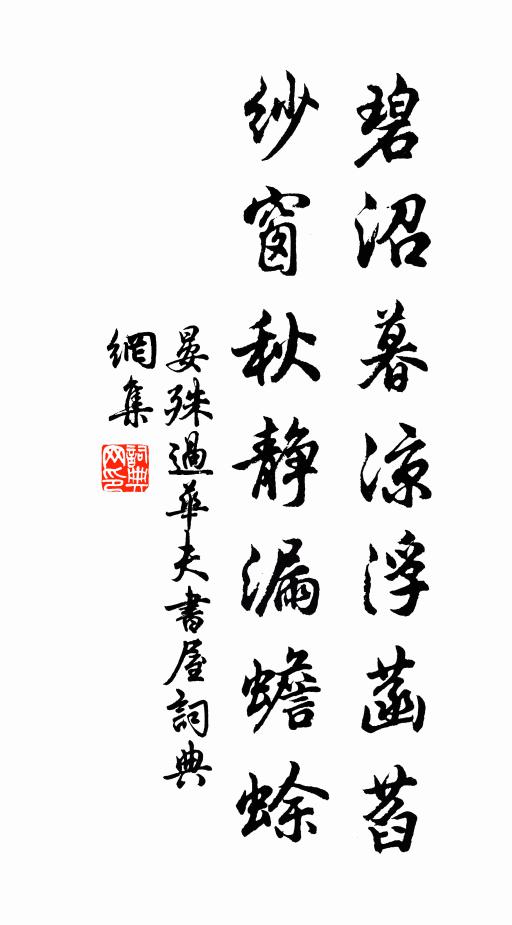 碧沼暮涼浮菡萏
紗窗秋靜漏蟾蜍
晏殊過華夫書屋詞典
網集
詞典
网印